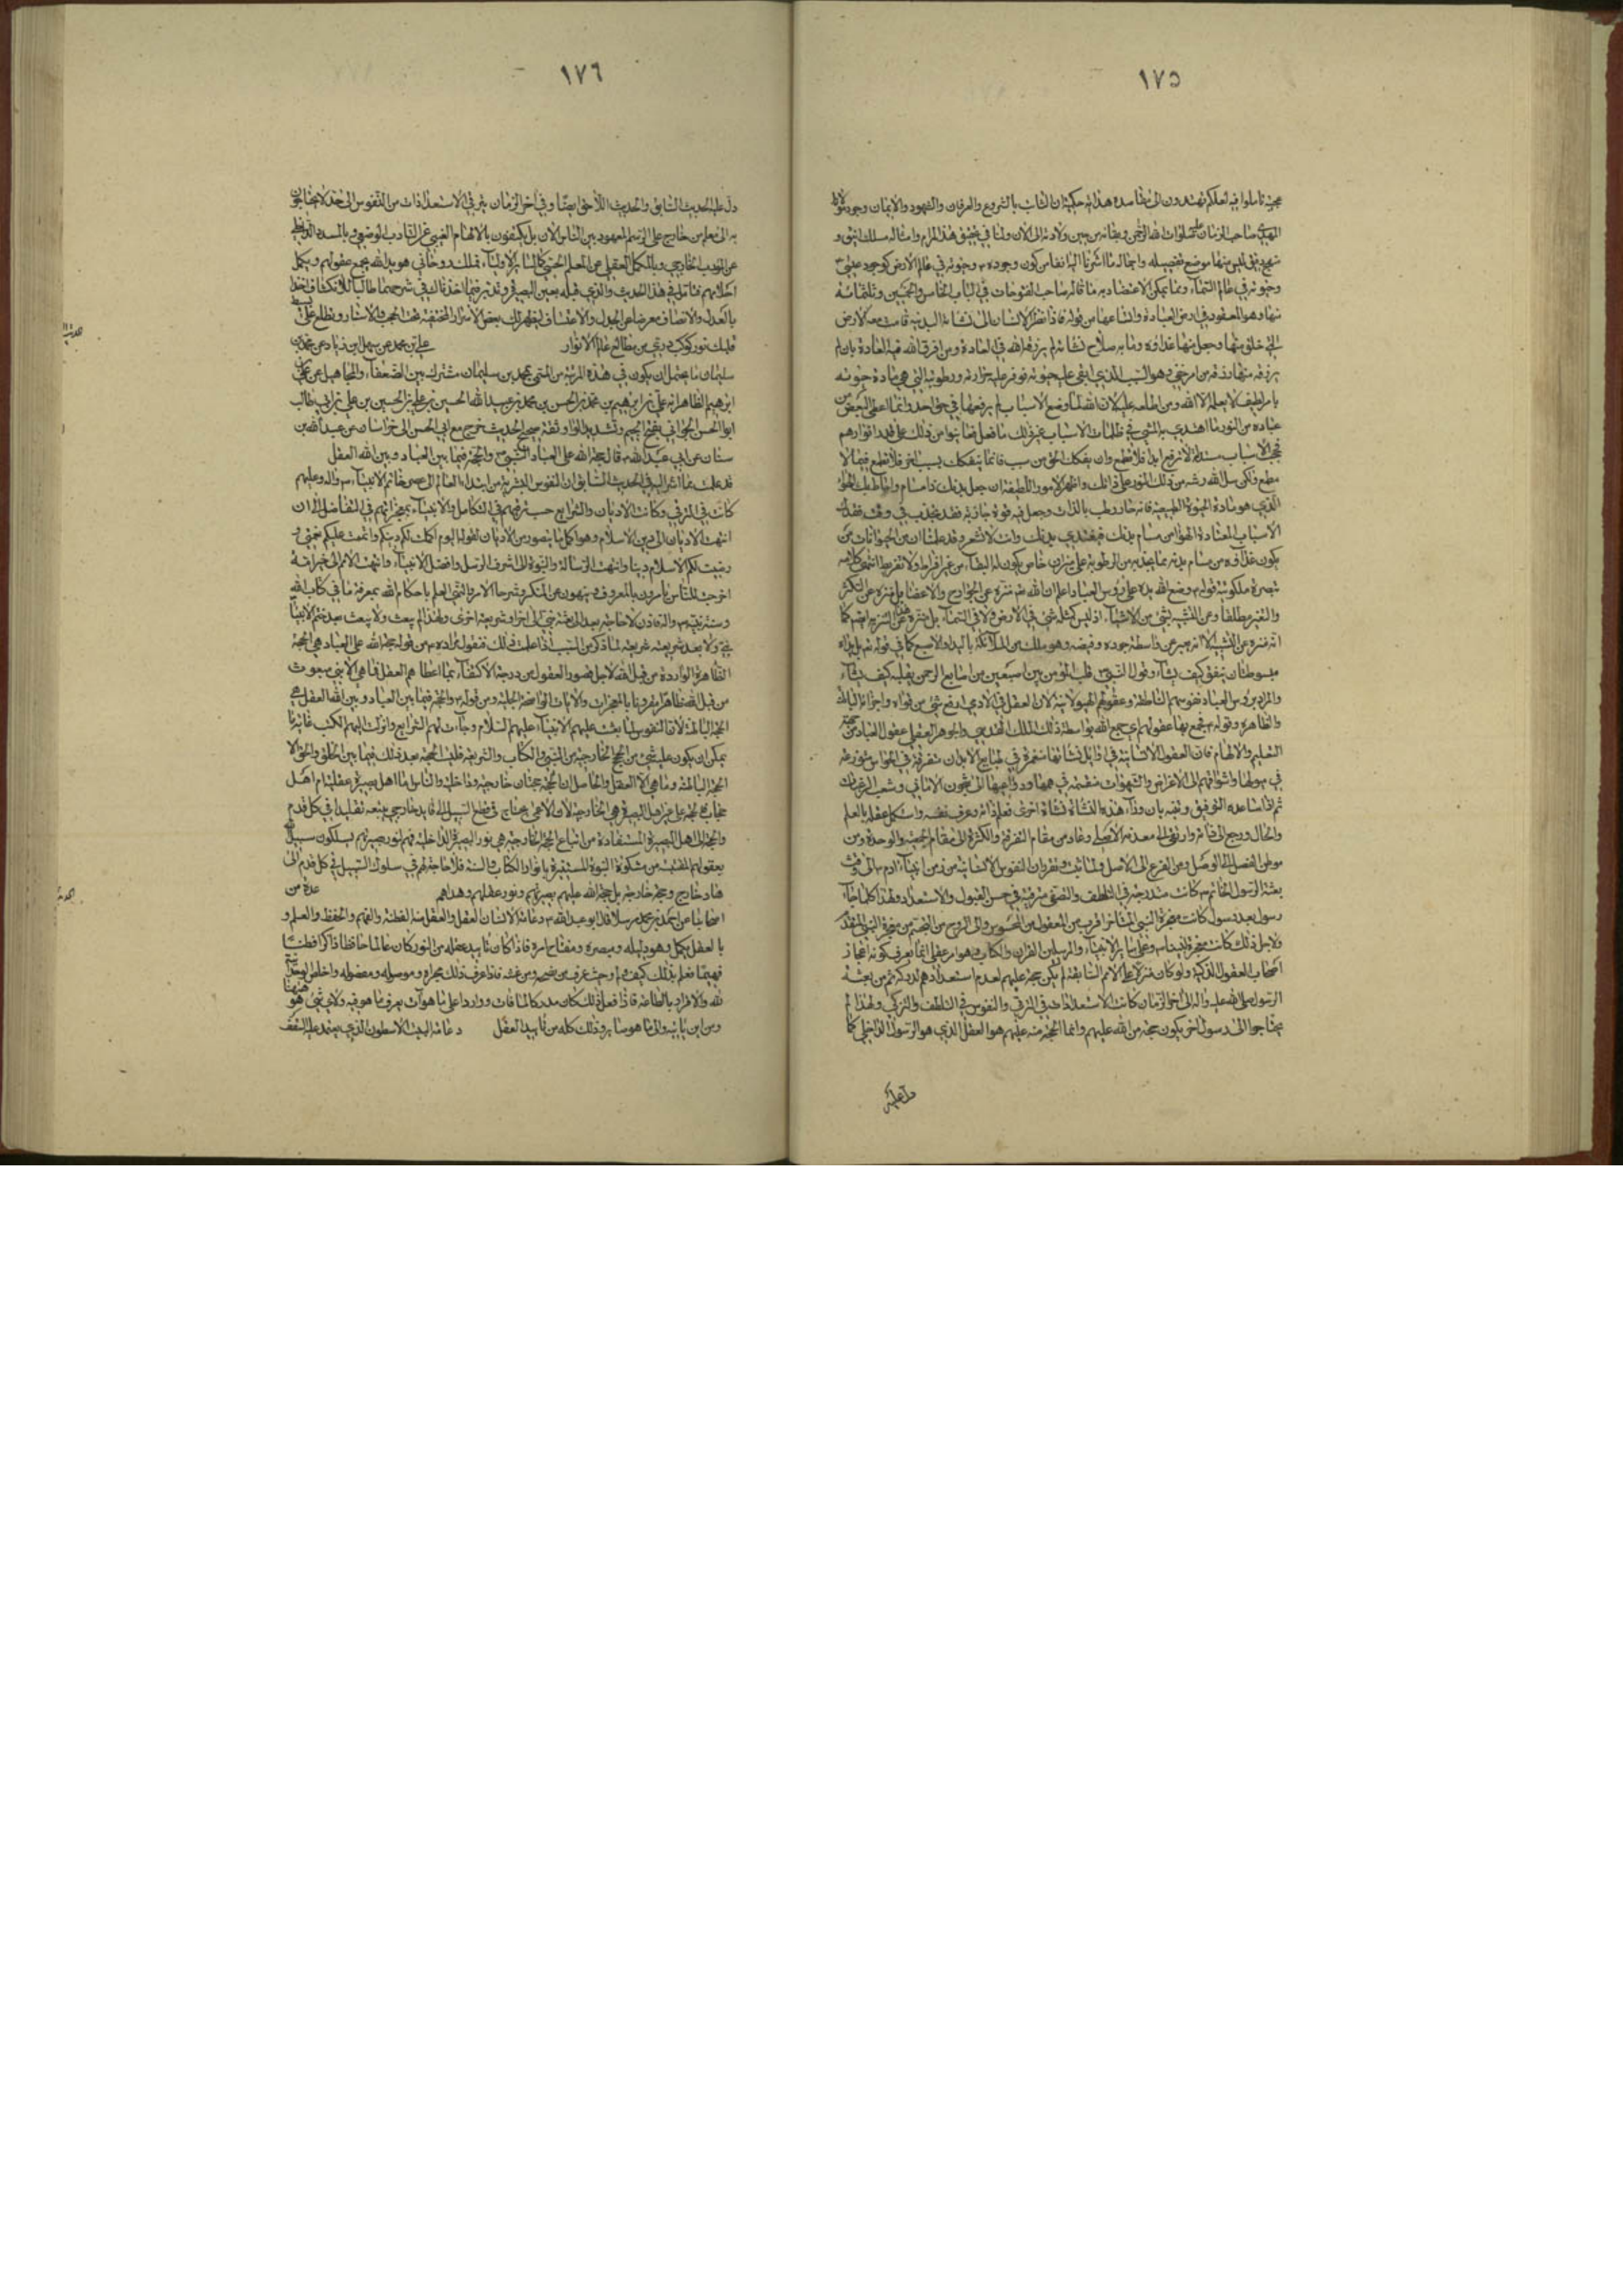 ١٧٥
تأملوا فيه لعلكم تهتدون الى مقاصده هذا انه حكيم ان الثابت بالشروع والعرفان والشهود والايمان وجود مولانا
المهدي صاحب الزمان عليه صلوات الله الرحمن وبقائه من حين ولادته الى الآن ولنا في تحقيق هذا المرام وامثاله مسلك انيق و
منهج دقيق ليس ههنا موضع تفصيله واجماله ما اشرنا اليه انفا من كون وجوده وحيوته في عالم الارض كوجود عيسى
وحيوته في عالم السماء ومما يمكن الاعتضاد به ما قاله صاحب الفتوحات في الباب الخامس والخمسين وثلثمائة
منها وهو المعقود في ارض العبادة واتساعها من قوله فاذا نظر الانسان الى نشأته البدنية قامت معه الارض
التي خلق منها وجعل منها غذاؤه وما به صلاح نشأته لم يرزقه الله في العادة ومن خرق الله فيه العادة بان لم
يرزقه منها رزقه من امر خفي وهو السبب الذي ابقى عليه حيوته فوفر عليه حرارته ورطوبته التي هي مادة حيوته
بامر لطيف لا يعلمه الا الله ومن اطلعه عليه لان الله لما وضع الاسباب لم يرفعها في حق احد وانما اعطى البعض من
عباده من النور ما اهتدى به المشي في ظلمات الاسباب غير ذلك ما فعل فعاينوا من ذلك على قدر انوارهم
فحجب الاسباب مسدلة لا ترفع ابدا فلا تطمع وان نقلك الحق من سبب فانما ينقلك بسبب اخر فلا تطمع فيما لا
مطمع ولكن سل الله رشه من ذلك النور على ذاتك واظهر الامور اللطيفة ان جعل بدنك ذا مسام واحاط بك الهواء
الذي هو مادة الحيوة الطبيعية فانه حار رطب بالذات وجعل فيه قوة جاذبة فقد يجذب في وقت فقدك
الاسباب المعتادة الهواء من مسام بدنك فيغتذي بدنك وانت لا تشعر وقد علمنا ان من الحيوانات من
يكون غذاؤه من مسام بدنه مما يجذبه من الرطوبة على ميزان خاص يكون له البقاء من غير افراط ولا تفريط انتهى كلامه
تبصرة ملكوتية قوله وضع الله يده على رؤوس العباد اعلم ان الله منزه عن الجوارح والاعضاء بل منزه عن التكثر
والتغير مطلقا ومن التشبيه بشيء من الاشياء اذ ليس كمثله شيء في الارض ولا في السماء بل منزه عن التنزيه ايضا كما
انه منزه عن التشبيه الا انه يعبر عن واسطة جوده وفيضه وهو ملك من الملائكة باليد والاصبع كما في قوله بل يداه
مبسوطتان ينفق كيف يشاء وقول النبي قلب المؤمن بين اصبعين من اصابع الرحمن يقلبه كيف يشاء
والمراد برؤوس العباد نفوسهم الناطقة وعقولهم الهيولانية لان العقل في الادمي ارفع شيء من قواه واجزائه الباطنة
والظاهرة وقوله فجمع بها عقولهم اي جمع الله بواسطة ذلك الملك القدسي والجوهر العقلي عقول العباد من جهة
التعليم والالهام فان العقول الانسانية في اوايل نشأتها منغمرة في طبايع الابدان متفرقة في الحواس متوزعة
في ميولها واشواقهم الى الاغراض والشهوات منقسمة في همها ودواعيها الى شجون الاماني وشعب الرغبات
ثم اذا ساعده التوفيق وتنبه بان وراء هذه النشأة نشأة اخرى فعلم ذاته وعرف نفسه واستكمل عقله بالعلم
والحال ورجع الى ذاته وارتقى الى معدنه الاصلي وعاد من مقام التفرقة والكثرة الى مقام الجمعية والوحدة ومن
موطن الفصل الى الوصل ومن الفرع الى الاصل ولما ثبت وتقرر ان النفوس الانسانية من زمن ابينا آدم الى وقت
بعثة الرسول الخاتم كانت متدرجة في التلطف والتصفي مترقية في حسن القبول والاستعداد ولهذا كلما جاء
رسول بعد رسول كانت معجزة النبي المتأخر اقرب من المعقول من المحسوس والى الروح من الجسم من معجزة النبي المتقدم
ولاجل ذلك كانت معجزة نبينا وعلى سائر الانبياء والمرسلين القرآن والكتاب وهو امر عقلي انما يعرف كونه اعجاز
اصحاب العقول الذكية ولو كان منزلا على الامم السابقة لم يكن حجة عليهم لعدم استعدادهم لدركه ثم من بعثة
الرسول صلى الله عليه وآله الى آخر الزمان كانت الاستعدادات في الترقي والنفوس في التلطف والتزكي ولهذا لم
يحتاجوا الى رسول اخر يكون حجة من الله عليهم وانما الحجة منه عليهم هو العقل الذي هو الرسول الداخلي كما
دل عليه
١٧٦
دل عليه الحديث السابق والحديث اللاحق ايضا وفي آخر الزمان يترقى الاستعدادات من النفوس الى حد لا يحتاجون
به الى معلم من خارج على الرسم المعهود بين الناس الآن بل يكتفون بالالهام الغيبي عن التأدب الوضعي وبالمسدد الداخلي
عن المؤدب الخارجي وبالمكمل العقلي عن المعلم الحسي كما لسائر الاولياء فملك روحاني هو يد الله يجمع عقولهم ويكمل
احلامهم فتأمل في هذا الحديث والذي قبله بعين البصيرة وتدبر فيما اخذناك في شرحهما طالبا للانكشاف اخذا
بالعدل والانصاف معرضا عن الجدل والاعتساف ليظهر لك بعض الاسرار المختفية تحت الحجب والاستار ويطلع على
قلبك نور كوكب دري من مطالع عالم الانوار علي بن محمد عن سهل بن زياد عن محمد بن
سليمان ما يحتمل ان يكون في هذه المرتبة من المسمى بمحمد بن سليمان مشترك بين الضعفاء والمجاهيل عن علي بن
ابرهيم الظاهر انه علي بن ابرهيم بن محمد بن الحسن بن محمد بن عبيد الله الحسين بن علي بن الحسين بن علي بن ابي طالب
ابو الحسن الجواني بفتح الجيم وتشديد الواو ثقة صحيح الحديث خرج مع ابي الحسن الى خراسان عن عبد الله بن
سنان عن ابي عبد الله قال حجة الله على العباد النبي والحجة فيما بين العباد وبين الله العقل
قد علمت مما اشرنا اليه في الحديث السابق ان النفوس البشرية من ابتداء العالم الى عهد خاتم الانبياء وآله وعليهم
كانت في الترقي وكانت الاديان والشرايع حسب ترقيهم في التكامل والانبياء بمعجزاتهم في التفاضل الى ان
انتهت الاديان الى دين الاسلام وهو اكمل ما يتصور من الاديان لقوله اليوم اكملت لكم دينكم واتممت عليكم نعمتي و
رضيت لكم الاسلام دينا وانتهت الرسالة والنبوة الى اشرف الرسل وافضل الانبياء وانتهت الامم الى خير امة
اخرجت للناس تأمرون بالمعروف وتنهون عن المنكر وشرحا الامر والنهي العلم باحكام الله بمعرفة ما في كتاب الله
وسنة نبيه فاذن لا حاجة بعد الى بعثة نبي آخر وشريعة اخرى ولهذا لم يبعث ولا يبعث بعد ختم الانبياء
نبي ولا بعد شريعته شريعة لما ذكر من السبب اذا علمت ذلك فنقول مراده من قوله حجة الله على العباد هي الحجة
الظاهرة الواردة من قبل الله لاجل قصور العقول من درجة الاكتفاء بما اعطاهم العقل فما هي الا نبي مبعوث
من قبل الله ظاهرا مقرونا بالمعجزات والآيات الواضحة الجلية ومن قوله والحجة فيما بين العباد وبين الله العقل هي
الحجة البالغة لان النفوس لما بعث عليهم الانبياء عليهم السلام وجاءت لهم الشرايع وانزلت اليهم الكتب غاية ما
يمكن ان يكون عليه شيء من الحجج الخارجية من النبي والكتاب والشريعة فليت الحجة بعد ذلك فيما بين الخلق والحق الا
الحجة البالغة وما هي الا العقل والحاصل ان الحجة حجتان خارجية وداخلية والناس اما اهل بصيرة عقلية ام اهل
حجاب فالحجة على غير اهل البصيرة هي الخارجية لان الاعمى يحتاج في قطع السبيل الى قايد خارجي يتبعه تقليدا في كل قدم
والحجة لاهل البصيرة المستفادة من اتباع الحجة الخارجية هي نور البصيرة الداخلية فهم بنور بصيرتهم يسلكون سبيل الله
بعقولهم المقتبسة من مشكوة النبوة المستنيرة بانوار الكتاب والسنة فلا حاجة لهم في سلوك السبيل في كل قدم الى
هاد خارج وحجة خارجة بل حجة الله عليهم بصيرتهم ونور عقلهم وهداهم عدة من
اصحابنا عن احمد بن محمد مرسلا قال ابو عبد الله دعامة الانسان العقل والعقل منه الفطنة والفهم والحفظ والعلم و
بالعقل يكمل وهو دليله ومبصره ومفتاح امره فاذا كان تأييد عقله من النور كان عالما حافظا ذاكرا فطنا
فهيما فعلم بذلك كيف ولم وحيث وعرف من نصحه ومن غشه فاذا عرف ذلك عرف مجراه وموصوله ومفصوله واخلص الوحدانية
لله والاقرار بالطاعة فاذا فعل ذلك كان مستدركا لما فات وواردا على ما هو آت يعرف ما هو فيه ولاي شيء هو ههنا
ومن اين يأتيه والى ما هو صائر وذلك كله من تأييد العقل دعامة البيت الاسطوان الذي يعتمد عليه السقف